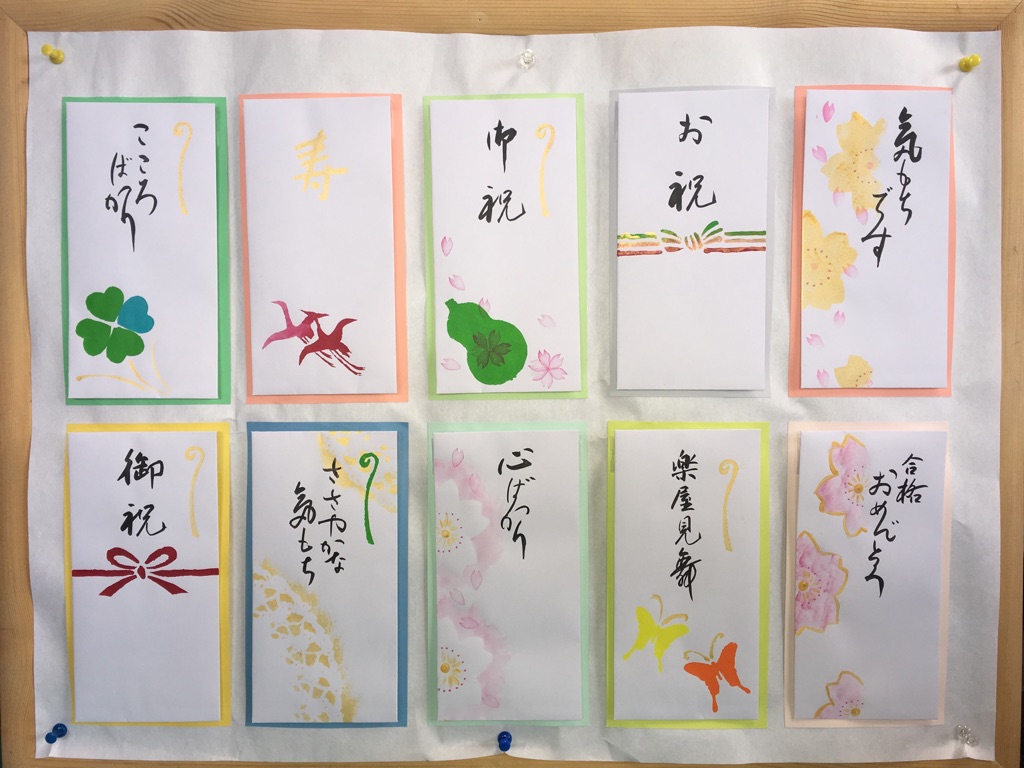 こころ
ばかり
寿
御祝
お祝
気もち
です
御祝
ささやかな
気もち
心ばかり
楽屋見舞
合格
おめでとう